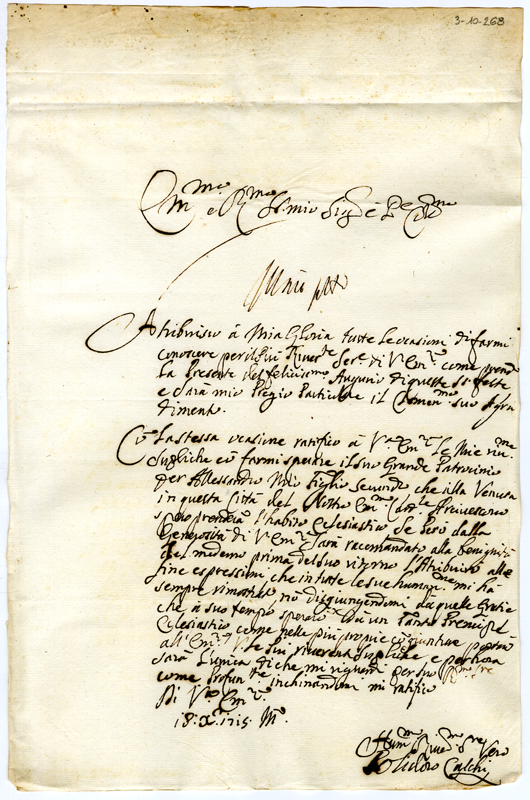 3-10-268
Em.mo e R.mo Sig. mio Sig.e e P.e Col.mo
Attribuisco à Mia Gloria tutte le ocasioni di farmi
conoscere per il più River.te Ser.e di V.a Em.a come prendo
la presente del felicissimo Augurio di queste S.te feste
e sarà mio Pregio Particolare il suo Agra
dimento.
Cō la stessa ocasione ratifico à V.a Em.a le mie riu.me
suppliche cō farmi sperare il suo Grande Patrocinio
per Allessandro Mio Figlio Secondo, che alla Venuta
in questa Città del Nostro Em.mo Arcivescovo
spero prenderà l'habito Eclesiastico Se però dalla
Generosità di V.a Em.a sarà racomandato alla benignità
del medemo prima del suo ritorno l'Atribuirò alle
fine espressioni, che in tutte le sue human.me mi ha
sempre rimostrato nō disgiungendomi da quelle Gratie
che à suo tempo spererò da un tanto Prencipe
Eclesiastico come nelle più proprie cōgiunture
all'Em.a V.a
sarà l'unica di che mi per suo
come profon.te inchinandomi mi ratifico
Di V.a Em.a
18 X.re 1715 M.o
Hum.mo Ser.re Vero
Isidoro Calchi